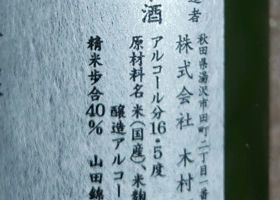 造者
秋田県湯沢市田町二丁目一番
株式会社 木村
酒
アルコール分16・5度
原材料名 米(国産)、米麹
醸造アルコー
精米歩合40% 山田錦